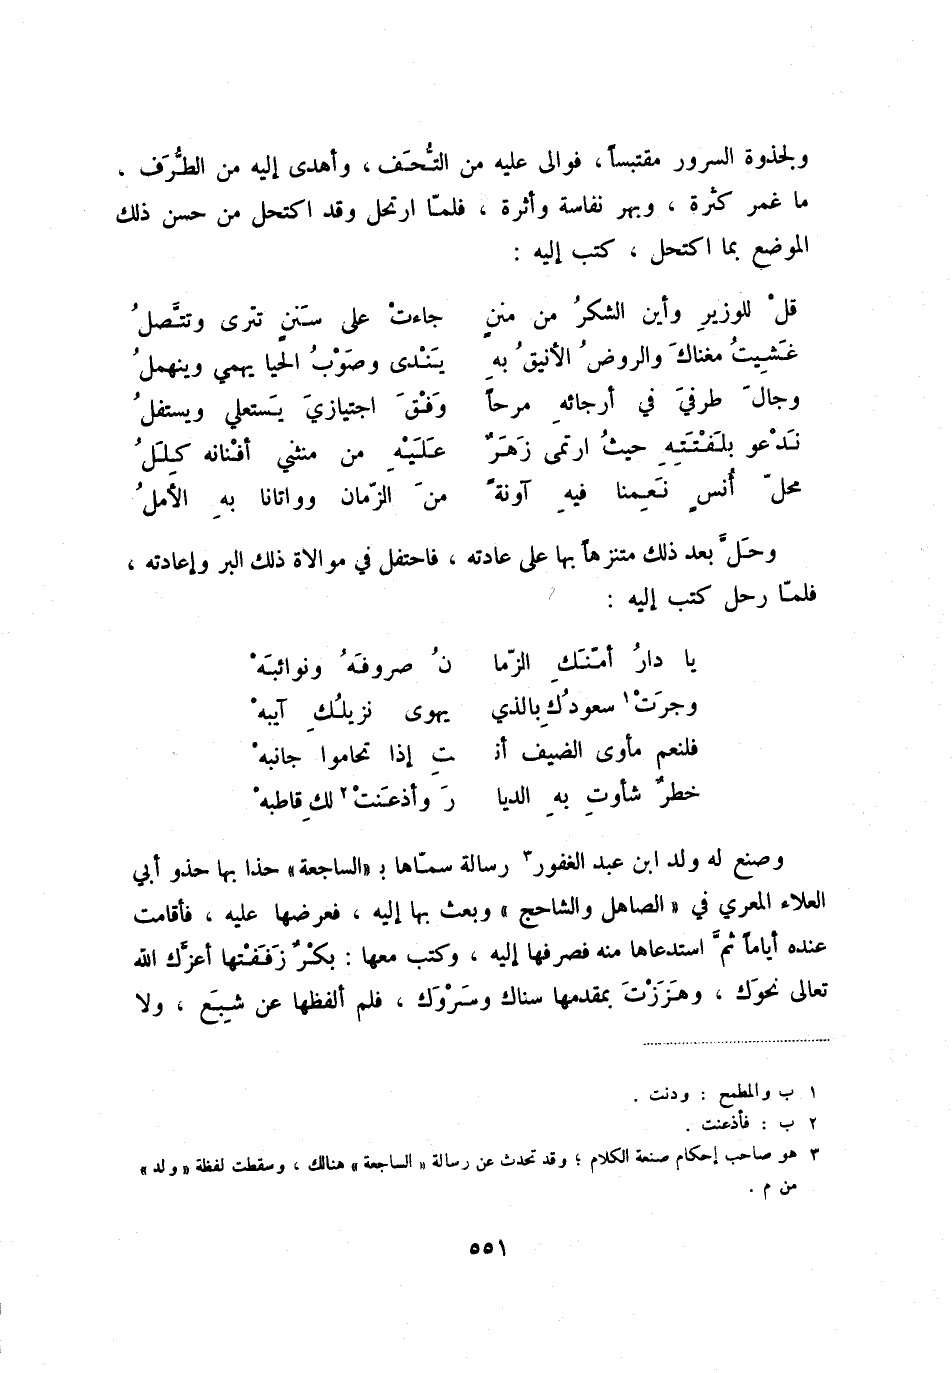 ولجذوة السرور مقتبساً ، فوالى عليه من التُّحَف ، وأهدى إليه من الطُّرَف ،
ما غمر كثرة ، وبهر نفاسة وأثرة ، فلمّا ارتحل وقد اكتحل من حسن ذلك
الموضع بما اكتحل ، كتب إليه :
قلْ للوزيرِ وأين الشكرُ من مننٍ جاءتْ على سَننٍ تترى وتتَّصلُ
غَشيتُ مغناكَ والروضُ الأنيقُ بهِ يَنْدى وصَوْبُ الحيا يهمي وينهملُ
وجالَ طرفيَ في أرجائهِ مرحاً وَفْقَ اجتيازيَ يَستعلي ويستفلُ
نَدْعو بلَفْتَتِهِ حيثُ ارتمى زهَرٌ عَلَيْهِ من منثني أفْنانه كِلَلُ
محلّ أُنسٍ نَعِمنا فيهِ آونةً منَ الزّمان وواتانا بهِ الأملُ
وحَلَّ بعد ذلك متنزهاً بها على عادته ، فاحتفل في موالاة ذلك البر وإعادته ،
فلمّا رحل كتب إليه :
يا دارُ أمّنَكِ الزّما نُ صروفَهُ ونوائبَهْ
وجرَتْ١ سعودُكِ بالذي يهوى نزيلُكِ آيبهْ
فلنعم مأوى الضيف أنـ ـتِ إذا تحاموا جانبهْ
خطرٌ شأوتِ بهِ الديا رَ وأذعَنتْ٢ لكِ قاطبهْ
وصنع له ولد ابن عبد الغفور٣ رسالة سمّاها بـ «الساجعة» حذا بها حذو أبي
العلاء المعري في « الصاهل والشاحج » وبعث بها إليه ، فعرضها عليه ، فأقامت
عنده أياماً ثمَّ استدعاها منه فصرفها إليه ، وكتب معها : بكْرٌ زَفَفْتها أعزَّك الله
تعالى نحوَك ، وهَزَزْتَ بمقدمها سناك وسَرْوَك ، فلم ألفظها عن شِبَع ، ولا
١ ب والمطمح : ودنت .
٢ ب : فأذعنت .
٣ هو صاحب إحكام صنعة الكلام ؛ وقد تحدث عن رسالة « الساجعة » هنالك ، وسقطت لفظة « ولد »
من م .
٥٥١